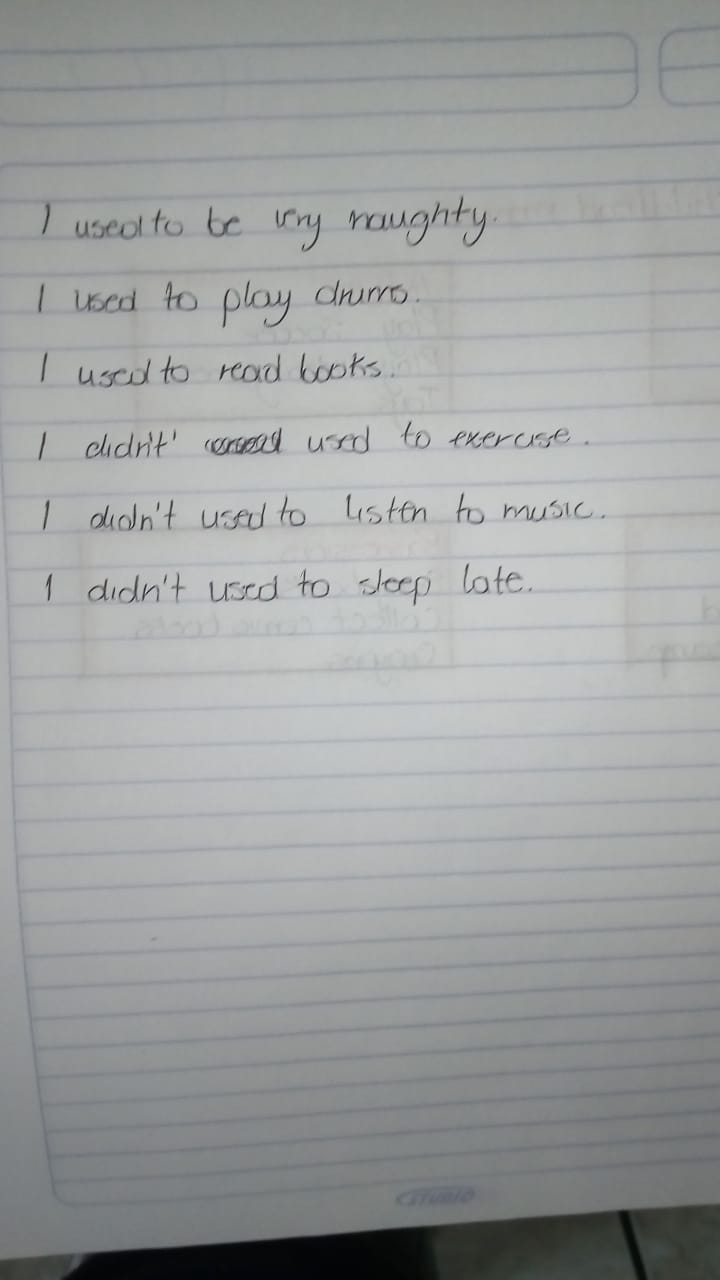 I used to be very naughty.
I used to play drums.
I used to read books.
I didn't' used to exercise.
I didn't used to listen to music.
I didn't used to sleep late.
STUDIO